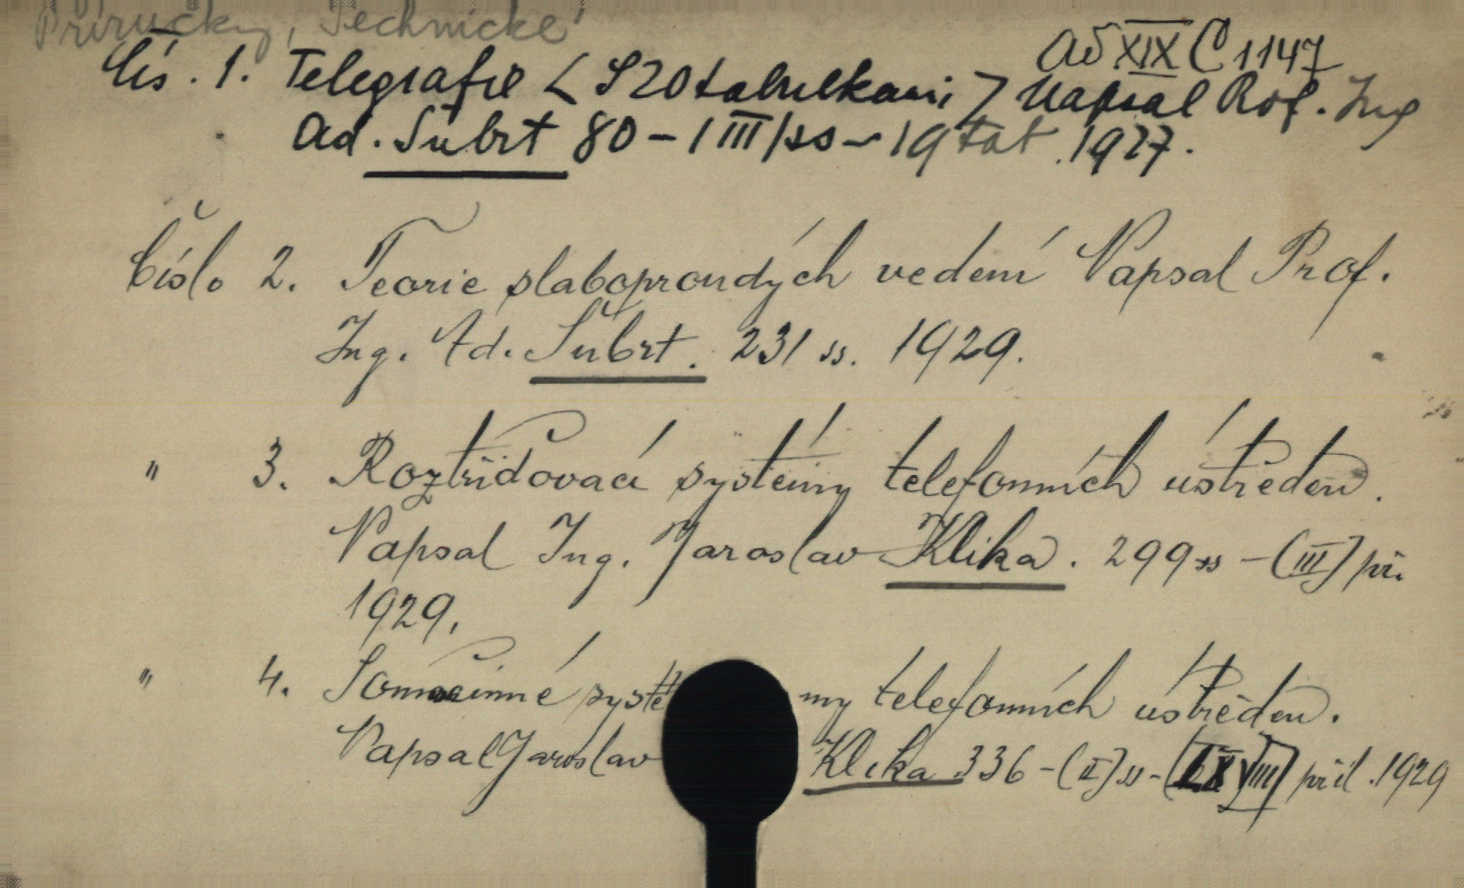 Příručky, Technické
ad XIX C 1147
Čís. 1. Telegrafie < S 20 tabulkami > Napsal Prof. Ing
Ad. Šubrt 80 - 1 III/ss - 19 tab. 1927.
Číslo 2. Teorie slaboproudých vedení Napsal Prof.
Ing. Ad. Šubrt. 231 ss. 1929.
" 3. Roztřiďovací systémy telefonních ústředen.
Napsal Ing. Jaroslav Klika. 299 ss - (III) př.
1929.
" 4. Samočinné systémy telefonních ústředen.
Napsal Jaroslav Klika 336 - (II) ss - (VIII) příl. 1929